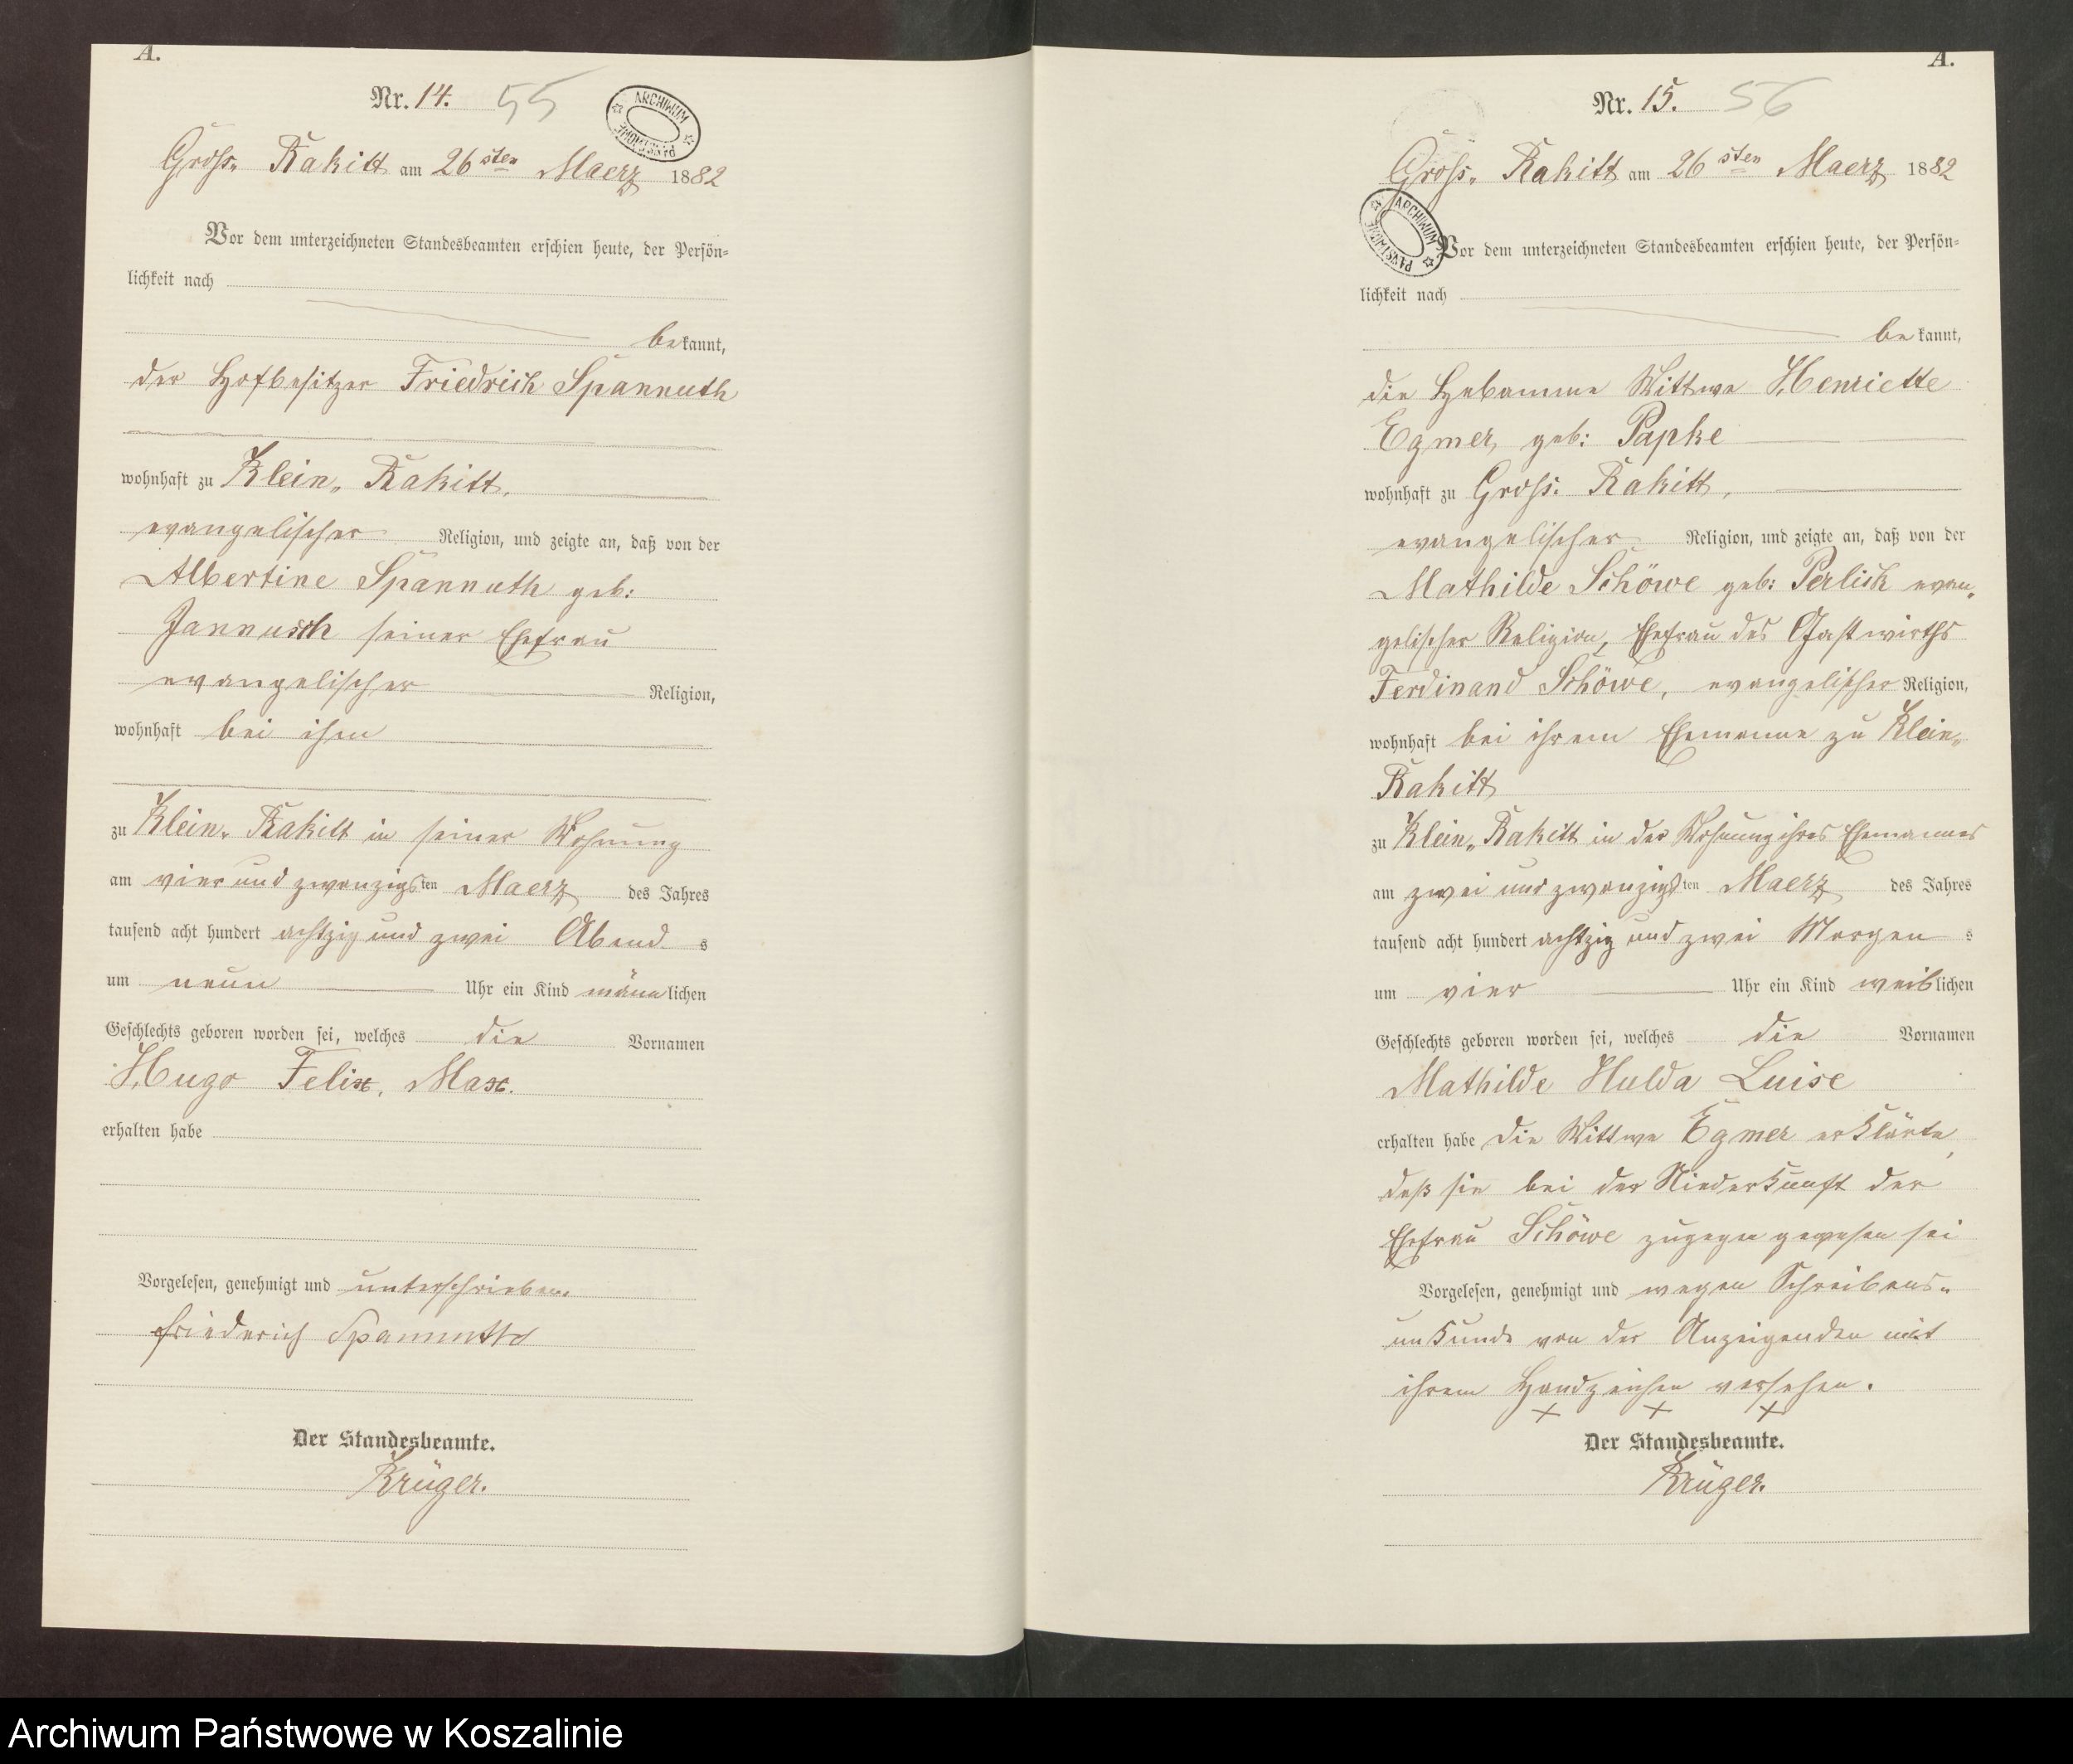 A.
Nr. 14. 55
ARCHIWUM PAŃSTWOWE
Gross„ Rakitt am 26sten Maerz 1882
Vor dem unterzeichneten Standesbeamten erschien heute, der Persön-
lichkeit nach
bekannt,
der Hofbesitzer Friedrich Spannuth
wohnhaft zu Klein„ Rakitt,
evangelischer Religion, und zeigte an, daß von der
Albertine Spannuth geb:
Jannusch seiner Ehefrau
evangelischer Religion,
wohnhaft bei ihm
zu Klein„ Rakitt in seiner Wohnung
am vier und zwanzigsten Maerz des Jahres
tausend acht hundert achtzig und zwei Abends
um neun Uhr ein Kind männlichen
Geschlechts geboren worden sei, welches die Vornamen
Hugo Felix, Max.
erhalten habe
Vorgelesen, genehmigt und unterschrieben.
Friederich Spannuth
Der Standesbeamte.
Krüger.
A.
Nr. 15. 56
Gross„ Rakitt am 26sten Maerz 1882
ARCHIWUM PAŃSTWOWE
Vor dem unterzeichneten Standesbeamten erschien heute, der Persön-
lichkeit nach
bekannt,
die Hebamme Wittwe Henriette
Egmer, geb: Papke
wohnhaft zu Gross: Rakitt,
evangelischer Religion, und zeigte an, daß von der
Mathilde Schöwe geb: Perlick evan„
gelischer Religion, Ehefrau des Gastwirths
Ferdinand Schöwe, evangelischer Religion,
wohnhaft bei ihrem Ehemanne zu Klein„
Rakitt
zu Klein„ Rakitt in der Wohnung ihres Ehemannes
am zwei und zwanzigsten Maerz des Jahres
tausend acht hundert achtzig und zwei Morgens
um vier Uhr ein Kind weiblichen
Geschlechts geboren worden sei, welches die Vornamen
Mathilde Hulda Luise
erhalten habe die Wittwe Egmer erklärte,
daß sie bei der Niederkunft der
Ehefrau Schöwe zugegen gewesen sei
Vorgelesen, genehmigt und wegen Schreibens„
unkunde von der Anzeigenden mit
ihrem Handzeichen versehen.
x x x
Der Standesbeamte.
Krüger.
Archiwum Państwowe w Koszalinie